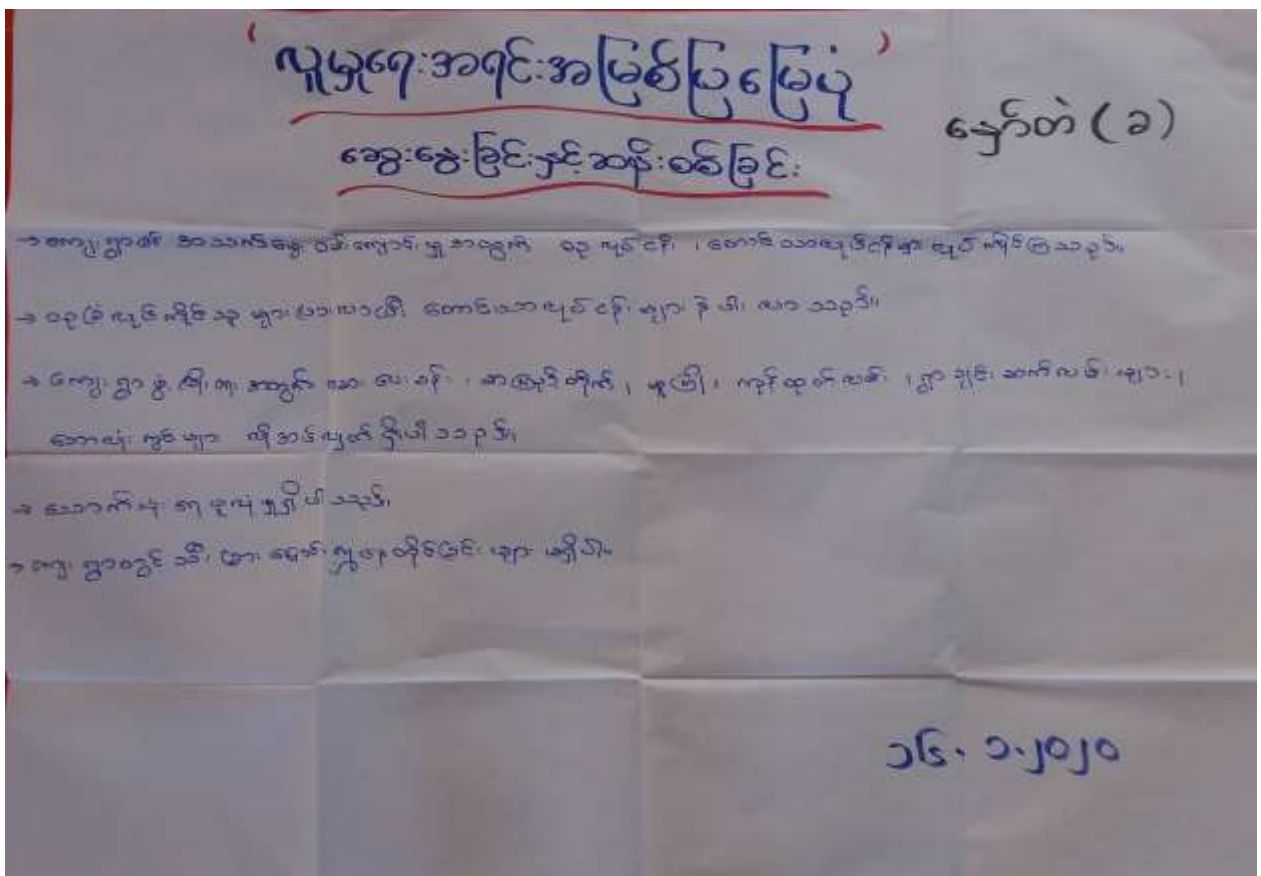 'လူမှုရေးအရင်းအမြစ်ပြမြေပုံ'
နှော်တဲ (ခ)
ဆွေးနွေးခြင်းနှင့်ဆန်းစစ်ခြင်း
→ ကျေးရွာ၏ အသက်မွေးဝမ်းကျောင်းမှုအတွက် ဥယျာဉ်လုပ်ငန်း၊ တောင်သူလုပ်ငန်းများ လုပ်ကိုင်ကြသည်။
→ လုပ်ကိုင်သူများလာ၍ တောင်သူလုပ်ငန်းများ နဲပါးလာသည်။
→ ကျေးရွာဖွံ့ဖြိုးရေးအတွက် ဆေးပေးခန်း၊ စာကြည့်တိုက်၊ မူကြို၊ ကုန်ထုတ်လမ်း၊ ရွာချင်းဆက်လမ်းများ၊
ဘောလုံးကွင်းများ လိုအပ်လျက်ရှိပါသည်။
→ သောက်သုံးရေ ဖူလုံမှုရှိပါသည်။
→ ကျေးရွာတွင် သီးခြား နေထိုင်ခြင်းများ မရှိပါ။
၁၆.၁.၂၀၂၀